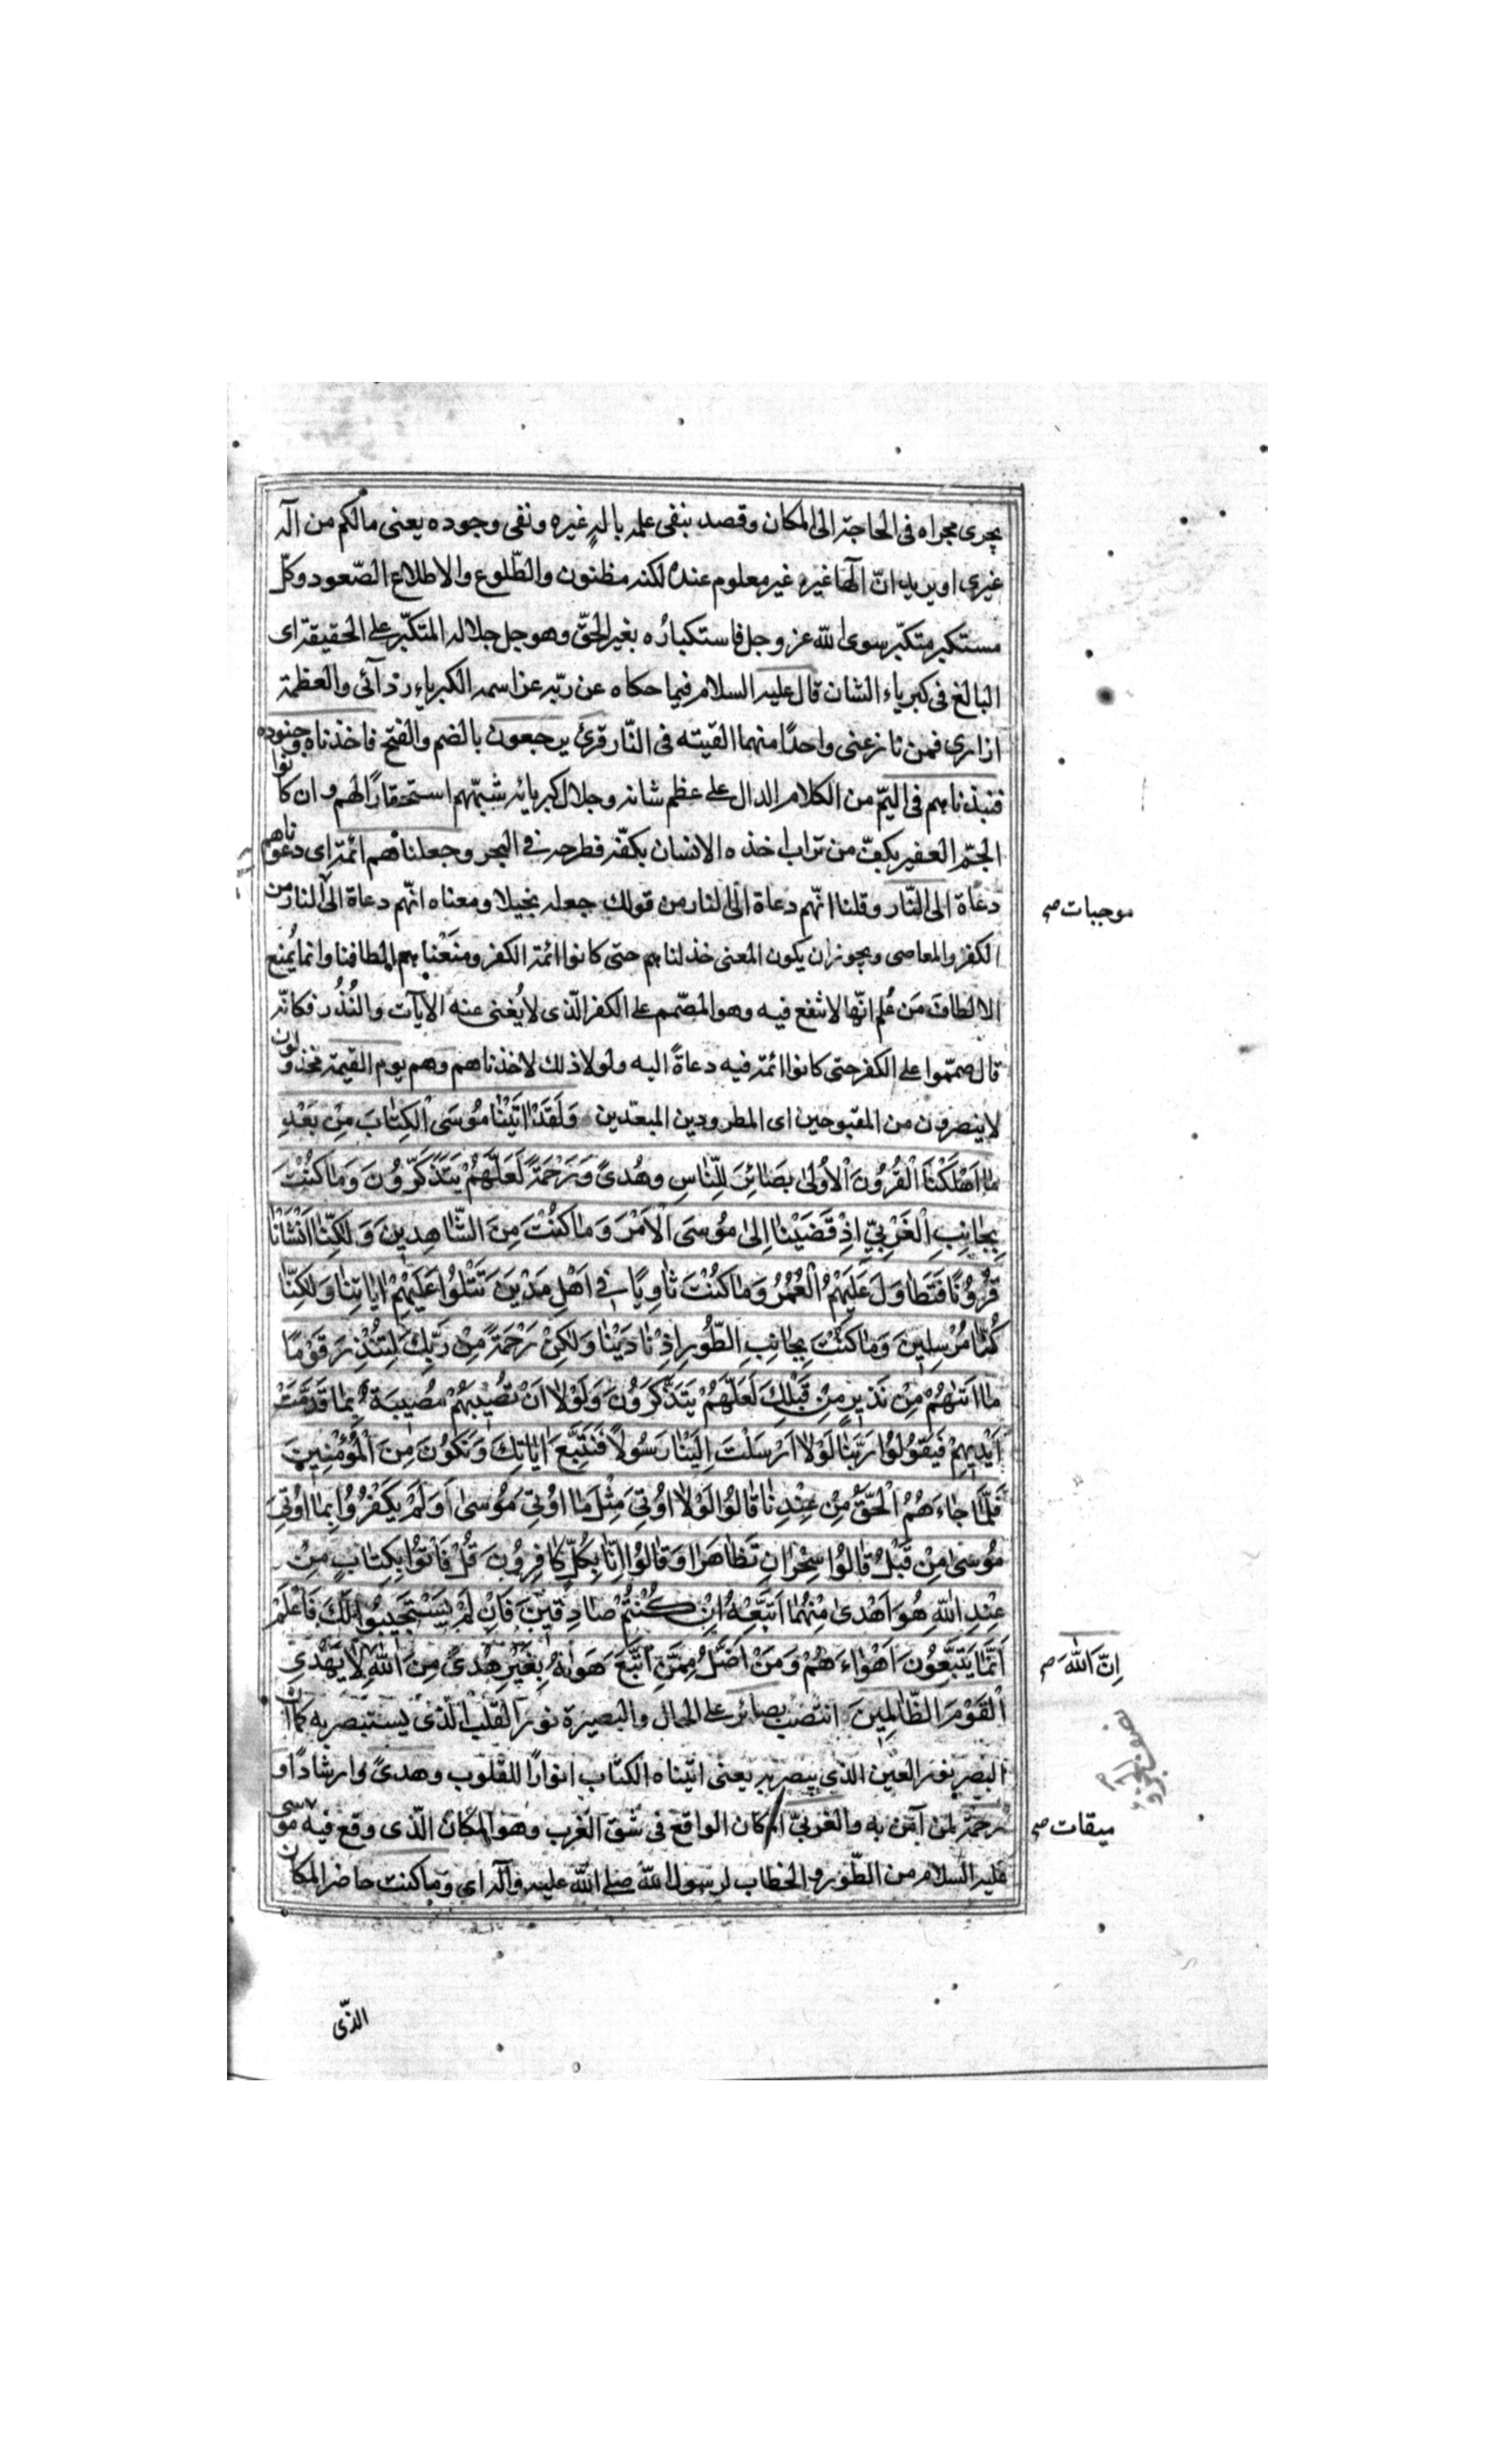 يجرى مجراه فى الحاجة الى المكان وقصد بنفى علمه باله غيره ونفى وجوده يعنى مالكم من اله
غيرى او يريد انّ الٓها غيره غير معلوم عنده لكنه مظنون والطّلوع والاطلاع الصّعود وكلّ
مستكبر متكبّر سوى الله عز وجل فاستكبارُه بغير الحقّ وهو جل جلاله المتكبّر على الحقيقة اى
البالغ فى كبرياء الشان قال عليه السلام فيما حكاه عن ربّه عز اسمه الكبرياء ردآئى والعظمة
ازارى فمن نازعنى واحدًا منهما القيته فى النّار قرئ يرجعون بالضم والفتح فاخذناه وجنوده
فنبذناهم فى اليمّ من الكلام الدال على عظم شانه وجلال كبريائه شبّههم استحقارًا لهم وان كانوا
الجمّ الغفير بكفّ من تراب اخذه الانسان بكفّه فطرحه فى البحر وجعلناهم ائمة اى دعوناهم
دعاة الى النّار وقلنا انّهم دعاة الى النار من قولك جعله بخيلا ومعناه انّهم دعاة الى النار من
موجبات صح
الكفر والمعاصى ويجوز ان يكون المعنى خذلناهم حتى كانوا ائمة الكفر ومنعْناهم الطافنا وانما يُمنع
الالطاف مَن عُلم انّها لا تنفع فيه وهو المصّمم على الكفر الّذى لا يُغنى عنه الآيات والنُذُر فكانّه
قال صمّموا على الكفر حتى كانوا ائمة فيه دعاةً اليه ولولا ذلك لاخذناهم وهم يوم القيمة مخذولون
لا ينصرون من المقبوحين اى المطرودين المبعّدين وَلَقَدْ اٰتَيْنٰا مُوسَى الْكِتٰابَ مِنْ بَعْدِ
مٰا اَهْلَكْنَا الْقُرُونَ الْاُولىٰ بَصٰائِرَ لِلنّٰاسِ وهُدىً وَرَحْمَةً لَعَلَّهُمْ يَتَذَكَّرُونَ وَمٰا كُنْتَ
بِجٰانِبِ الْغَرْبِيِّ اِذْ قَضَيْنٰا اِلىٰ مُوسَى الْاَمْرَ وَمٰا كُنْتَ مِنَ الشّٰاهِدِينَ وَلٰكِنّٰا اَنْشَاْنٰا
قُرُونًا فَتَطٰاوَلَ عَلَيْهِمُ الْعُمُرُ وَمٰا كُنْتَ ثٰاوِيًا فِي اَهْلِ مَدْيَنَ تَتْلُوا عَلَيْهِمْ اٰيٰاتِنٰا وَلٰكِنّٰا
كُنّٰا مُرْسِلِينَ وَمٰا كُنْتَ بِجٰانِبِ الطُّورِ اِذْ نٰادَيْنٰا وَلٰكِنْ رَحْمَةً مِنْ رَبِّكَ لِتُنْذِرَ قَوْمًا
مٰا اَتٰيهُمْ مِنْ نَذِيرٍ مِنْ قَبْلِكَ لَعَلَّهُمْ يَتَذَكَّرُونَ وَلَوْلٰا اَنْ تُصِيبَهُمْ مُصِيبَةٌ بِمٰا قَدَّمَتْ
اَيْدِيهِمْ فَيَقُولُوا رَبَّنٰا لَوْلٰا اَرْسَلْتَ اِلَيْنٰا رَسُولًا فَنَتَّبِعَ اٰيٰاتِكَ وَنَكُونَ مِنَ الْمُؤْمِنِينَ
فَلَمّٰا جٰاءَهُمُ الْحَقُّ مِنْ عِنْدِنٰا قٰالُوا لَوْلٰا اُوتِيَ مِثْلَ مٰا اُوتِيَ مُوسىٰ اَوَلَمْ يَكْفُرُوا بِمٰا اُوتِيَ
مُوسىٰ مِنْ قَبْلُ قٰالُوا سِحْرٰانِ تَظٰاهَرٰا وَقٰالُوا اِنّٰا بِكُلٍّ كٰافِرُونَ قُلْ فَاْتُوا بِكِتٰابٍ مِنْ
عِنْدِ اللّٰهِ هُوَ اَهْدىٰ مِنْهُمٰا اَتَّبِعْهُ اِنْ كُنْتُمْ صٰادِقِينَ فَاِنْ لَمْ يَسْتَجِيبُوا لَكَ فَاعْلَمْ
اَنَّمٰا يَتَّبِعُونَ اَهْوٰاءَهُمْ وَمَنْ اَضَلُّ مِمَّنِ اتَّبَعَ هَوٰيهُ بِغَيْرِ هُدىً مِنَ اللّٰهِ لٰا يَهْدِى
اِنَّ اللّٰهَ صح
الْقَوْمَ الظّٰالِمِينَ انتصب بصائر على الحال والبصيرة نور القلب الّذى يستبصر به كما انّ
البصر نور العين الذى يبصر به يعنى اتيناه الكتاب انوارًا للقلوب وهدىً وارشادًا و
رحمة لمن آمن به والغربىّ المكان الواقع فى شق الغرب وهو المكان الّذى وقع فيه موسى
ميقات صح
عليه السلام من الطّور والخطاب لرسول الله صلى الله عليه وآله اى وما كنت حاضر المكان
الذّى